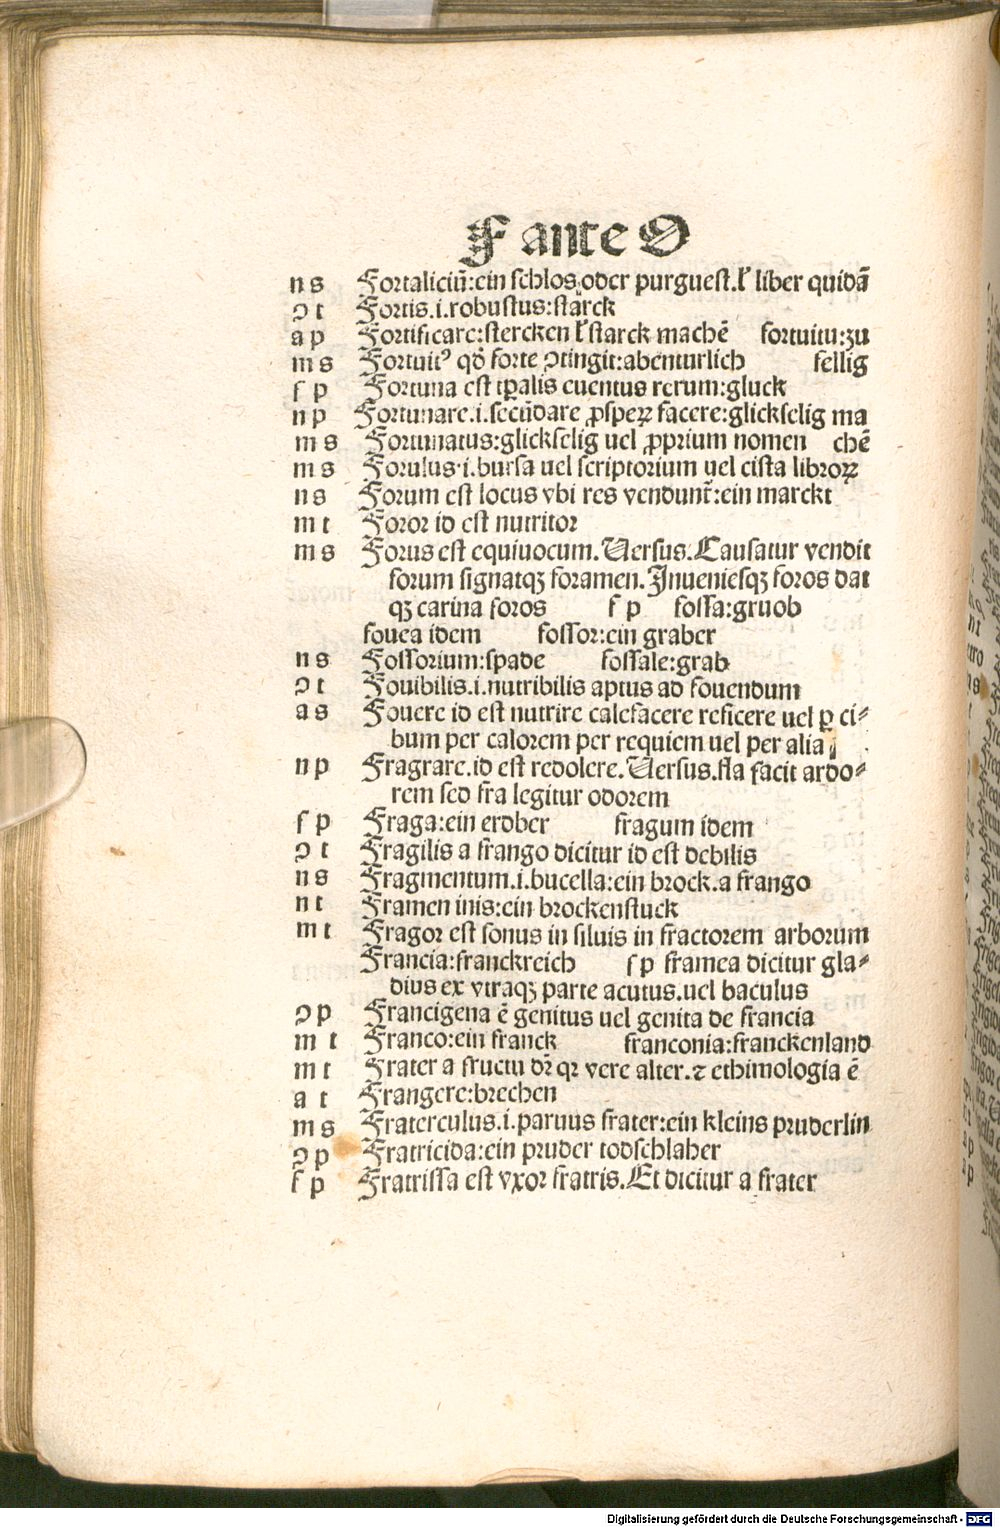 F ante O
n s Fortaliciū:ein schlos oder purguest.ł liber quidā
ɔ t Fortis.i.robustus:starck
a p Fortificare:stercken ł starck machē fortuitu:zu
m s Fortuitꝰ qđ forte ɔtingit:abenturlich fellig
f p Fortuna est tꝑalis euentus rerum:gluck
n p Fortunare.i.secūdare ꝓsperꝝ facere:glickselig ma
m s Fortunatus:glickselig uel ꝓprium nomen chē
m s Forulus.i.bursa uel scriptorium uel cista libroꝝ
n s Forum est locus vbi res vendunt̃:ein marckt
m t Foror id est nutritor
m s Forus est equiuocum.Uersus.Causatur vendit
forum signatqꝫ foramen.Inueniesqꝫ foros dat
qꝫ carina foros f p fossa:gruob
fouea idem fossor:ein graber
n s Fossorium:spade fossale:grab
ɔ t Fouibilis.i.nutribilis aptus ad fouendum
a s Fouere id est nutrire calefacere reficere uel ꝑ ci⸗
bum per calorem per requiem uel per alia
n p Fragrare.id est redolere.Uersus.fla facit ardo⸗
rem sed fra legitur odorem
f p Fraga:ein erdber fragum idem
ɔ t Fragilis a frango dicitur id est debilis
n s Fragmentum.i.bucella:ein brock.a frango
n t Framen inis:ein brockenstuck
m t Fragor est sonus in siluis in fractorem arborum
Francia:franckreich f p framea dicitur gla⸗
dius ex vtraqꝫ parte acutus.uel baculus
ɔ p Francigena ē genitus uel genita de francia
m t Franco:ein franck franconia:franckenland
m t Frater a fructu dr̄ qꝛ vere alter.⁊ ethimologia ē
a t Frangere:brechen
m s Fraterculus.i.paruus frater:ein kleins pruderlin
ɔ p Fratricida:ein pruder todschlaher
f p Fratrissa est vxor fratris.Et dicitur a frater
Digitalisierung gefördert durch die Deutsche Forschungsgemeinschaft - DFG